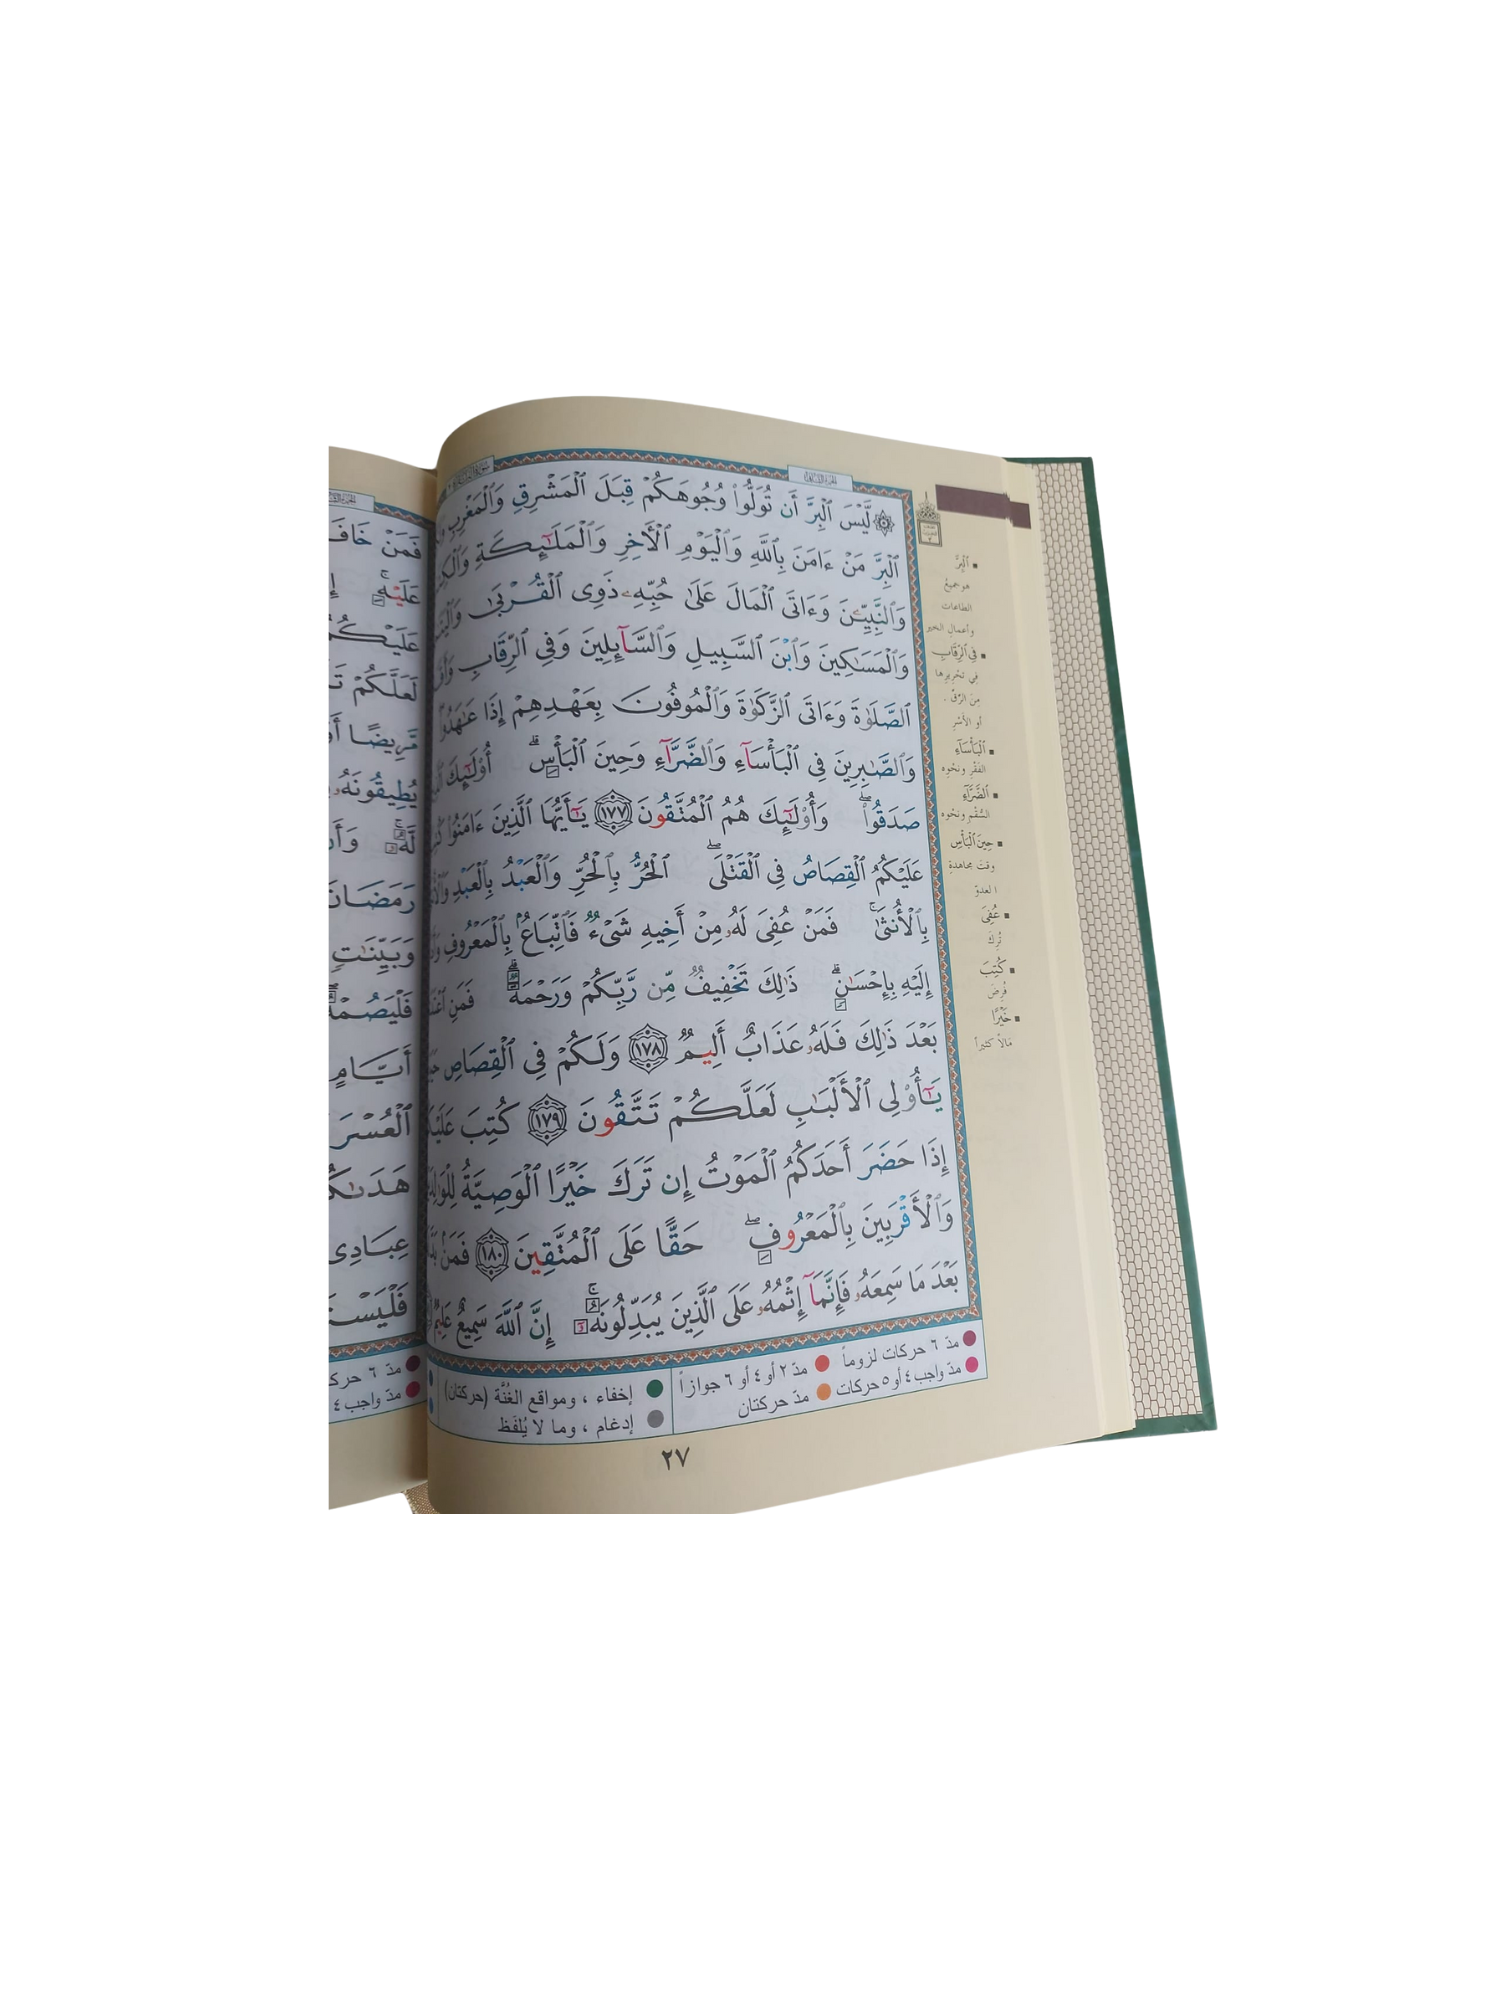 لَّيْسَ ٱلْبِرَّ أَن تُوَلُّوا۟ وُجُوهَكُمْ قِبَلَ ٱلْمَشْرِقِ وَٱلْمَغْرِبِ
ٱلْبِرَّ مَنْ ءَامَنَ بِٱللَّهِ وَٱلْيَوْمِ ٱلْأَخِرِ وَٱلْمَلَٰٓئِكَةِ
وَٱلنَّبِيِّـۧنَ وَءَاتَى ٱلْمَالَ عَلَىٰ حُبِّهِۦ ذَوِى ٱلْقُرْبَىٰ
وَٱلْمَسَٰكِينَ وَٱبْنَ ٱلسَّبِيلِ وَٱلسَّآئِلِينَ وَفِى ٱلرِّقَابِ
ٱلصَّلَوٰةَ وَءَاتَى ٱلزَّكَوٰةَ وَٱلْمُوفُونَ بِعَهْدِهِمْ إِذَا عَٰهَدُوا۟
وَٱلصَّٰبِرِينَ فِى ٱلْبَأْسَآءِ وَٱلضَّرَّآءِ وَحِينَ ٱلْبَأْسِ ۗ أُو۟لَٰٓئِكَ
صَدَقُوا۟ ۖ وَأُو۟لَٰٓئِكَ هُمُ ٱلْمُتَّقُونَ ١٧٧ يَٰٓأَيُّهَا ٱلَّذِينَ ءَامَنُوا۟
عَلَيْكُمُ ٱلْقِصَاصُ فِى ٱلْقَتْلَى ۖ ٱلْحُرُّ بِٱلْحُرِّ وَٱلْعَبْدُ بِٱلْعَبْدِ
بِٱلْأُنثَىٰ ۚ فَمَنْ عُفِىَ لَهُۥ مِنْ أَخِيهِ شَىْءٌ فَٱتِّبَاعٌۢ بِٱلْمَعْرُوفِ
إِلَيْهِ بِإِحْسَٰنٍ ۗ ذَٰلِكَ تَخْفِيفٌ مِّن رَّبِّكُمْ وَرَحْمَةٌ ۗ فَمَنِ
بَعْدَ ذَٰلِكَ فَلَهُۥ عَذَابٌ أَلِيمٌ ١٧٨ وَلَكُمْ فِى ٱلْقِصَاصِ
يَٰٓأُو۟لِى ٱلْأَلْبَٰبِ لَعَلَّكُمْ تَتَّقُونَ ١٧٩ كُتِبَ
إِذَا حَضَرَ أَحَدَكُمُ ٱلْمَوْتُ إِن تَرَكَ خَيْرًا ٱلْوَصِيَّةُ
وَٱلْأَقْرَبِينَ بِٱلْمَعْرُوفِ ۖ حَقًّا عَلَى ٱلْمُتَّقِينَ ١٨٠ فَمَنۢ
بَعْدَ مَا سَمِعَهُۥ فَإِنَّمَآ إِثْمُهُۥ عَلَى ٱلَّذِينَ يُبَدِّلُونَهُۥٓ ۚ إِنَّ ٱللَّهَ سَمِيعٌ عَلِيمٌ
ٱلْبِرَّ
هو جميع
الطاعات
وأعمال الخير
فِي ٱلرِّقَابِ
في تحريرها
من الرِّقِّ .
أو الأسر
ٱلْبَأْسَآءِ
الفقر ونحوه
ٱلضَّرَّآءِ
السُّقم ونحوه
حِينَ ٱلْبَأْسِ
وقت مجاهدة
العدوّ
عُفِيَ
تُرِكَ
كُتِبَ
فُرِضَ
خَيْرًا
مالاً كثيراً
مدّ ٦ حركات لزوماً
مدّ واجب ٤ أو ٥ حركات
مدّ ٢ أو ٤ أو ٦ جوازاً
مدّ حركتان
إخفاء ، ومواقع الغُنَّة (حركتان)
إدغام ، وما لا يُلفَظ
٢٧
فَمَنْ
عَلَيْهِ ۚ
لَعَلَّكُمْ
مَّرِيضًا
يُطِيقُونَهُۥ
رَمَضَانَ
وَبَيِّنَٰتٍ
فَلْيَصُمْهُ ۖ
أَيَّامٍ
ٱلْعُسْرَ
عِبَادِى
مدّ ٦
مدّ واجب ٤